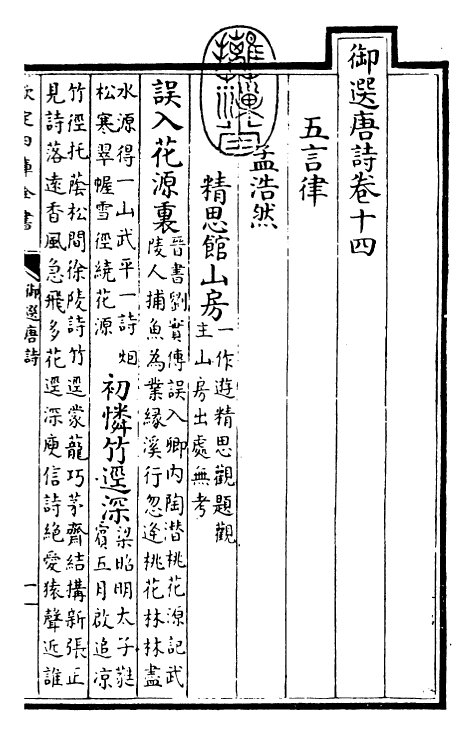 御選唐詩卷十四
五言律
孟浩然
精思館山房一作遊精思觀題觀
主山房出處無考
誤入花源裏晉書劉實傳誤入卿内陶潛桃花源記武
陵人捕魚為業緣溪行忽逢桃花林林盡
水源得一山武平一詩烟
松寒翠幄雪徑繞花源
初憐竹逕深梁昭明太子蕤
賓五月啟追凉
竹徑托蔭松間徐陵詩竹逕蒙蘢巧茅齋結構新張正
見詩落遠香風急飛多花逕深庾信詩絕愛猿聲近誰
欽定四庫全書
御選唐詩
一